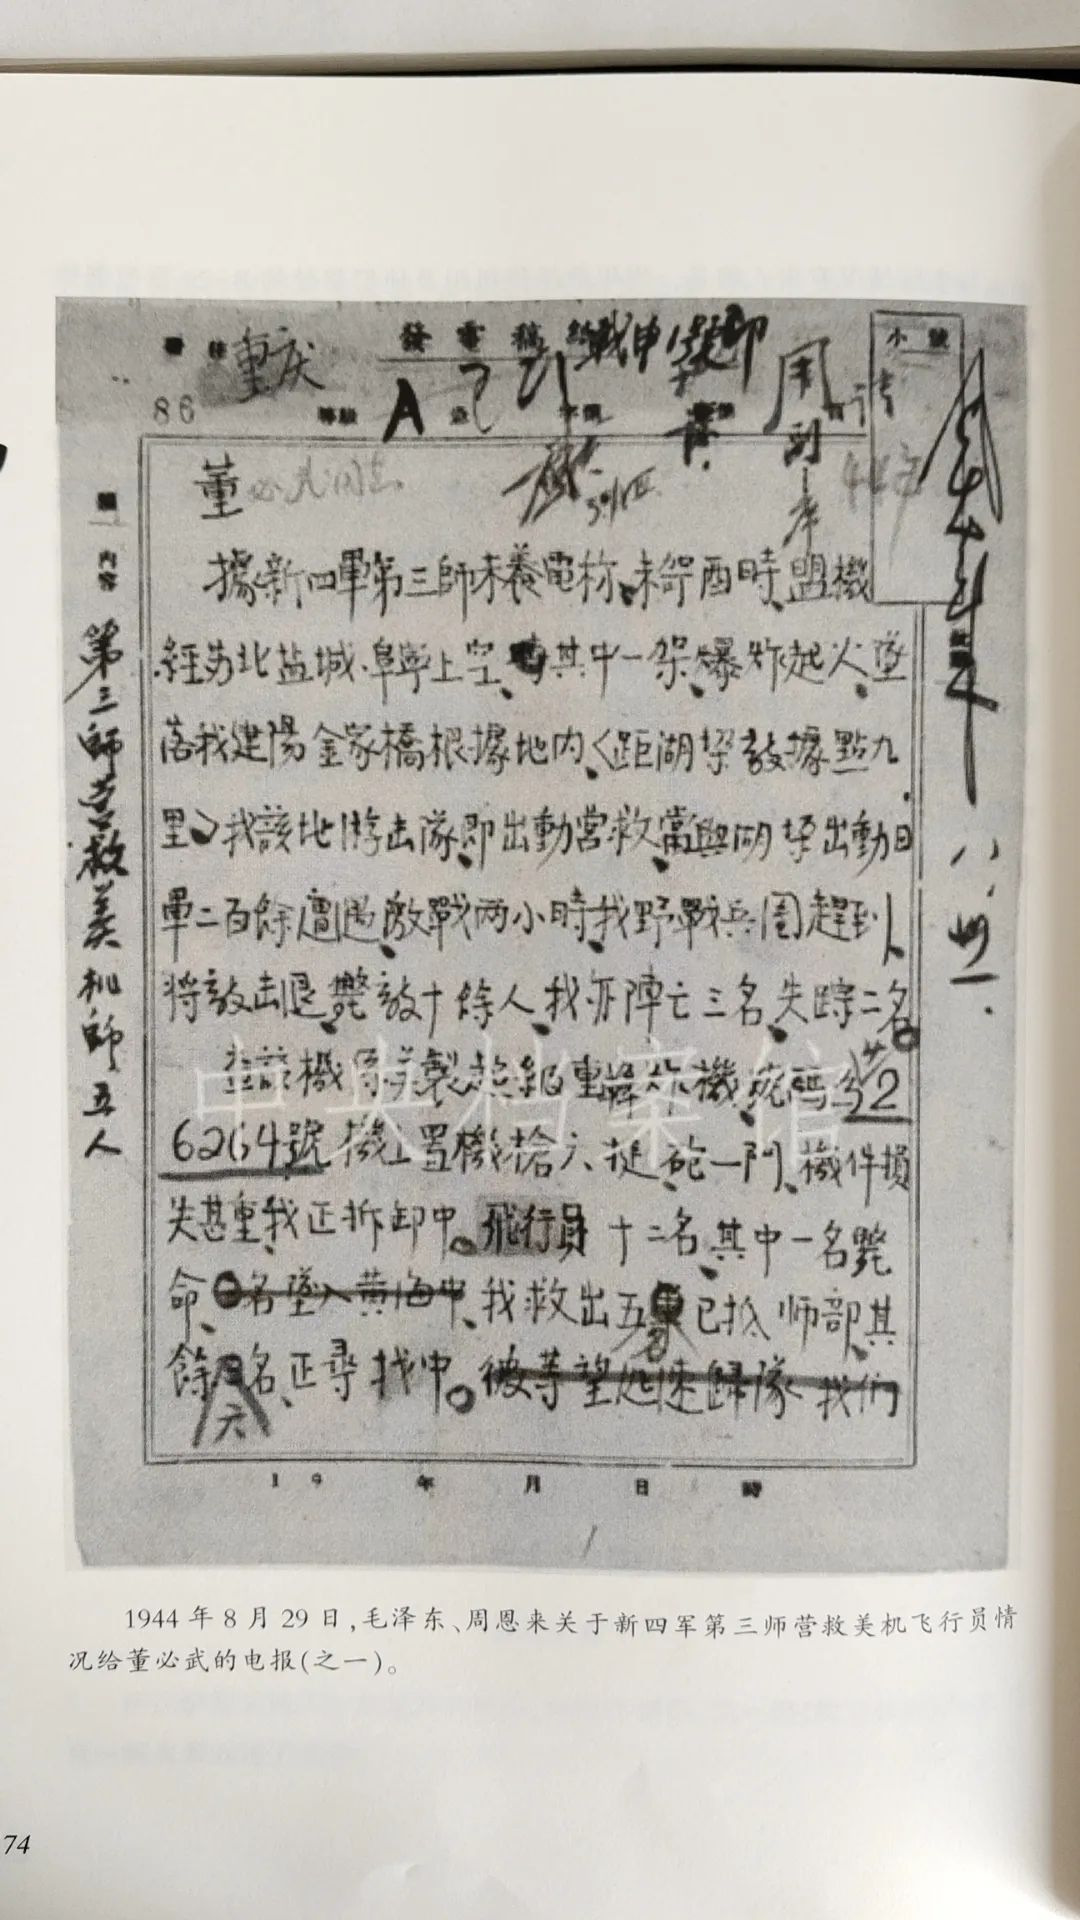 發電稿
重庆
小號
86
等級 A
周
董必武同志
內容
第三師营救美机師五人
據新四軍第三師未養電称、未哿酉時、盟機
經苏北盐城、阜寧上空、其中一架、爆炸起火、墜
落我建陽金家橋根據地内、〈距湖垛敌據點九
里〉我該地游击隊、即出動营救、當與湖垛出動日
軍二百餘遭遇、激戰两小時、我野戰兵團趕到、
将敌击退、斃敌十餘人、我亦陣亡三名、失踪二名。
查該機原美製超級重轟炸機、號碼為2
6264號、機上置機槍六挺、砲一門、機件損
失甚重、我正拆卸中。飛行員十二名、其中一名斃
命、名墜入黄海中、我救出五名已抵师部、其
餘六名、正尋找中。彼等望能速歸隊、我们
19 年 月 日 時
八、卅一.
中央档案馆
1944年8月29日,毛泽东、周恩来关于新四军第三师营救美机飞行员情
况给董必武的电报(之一)。
74